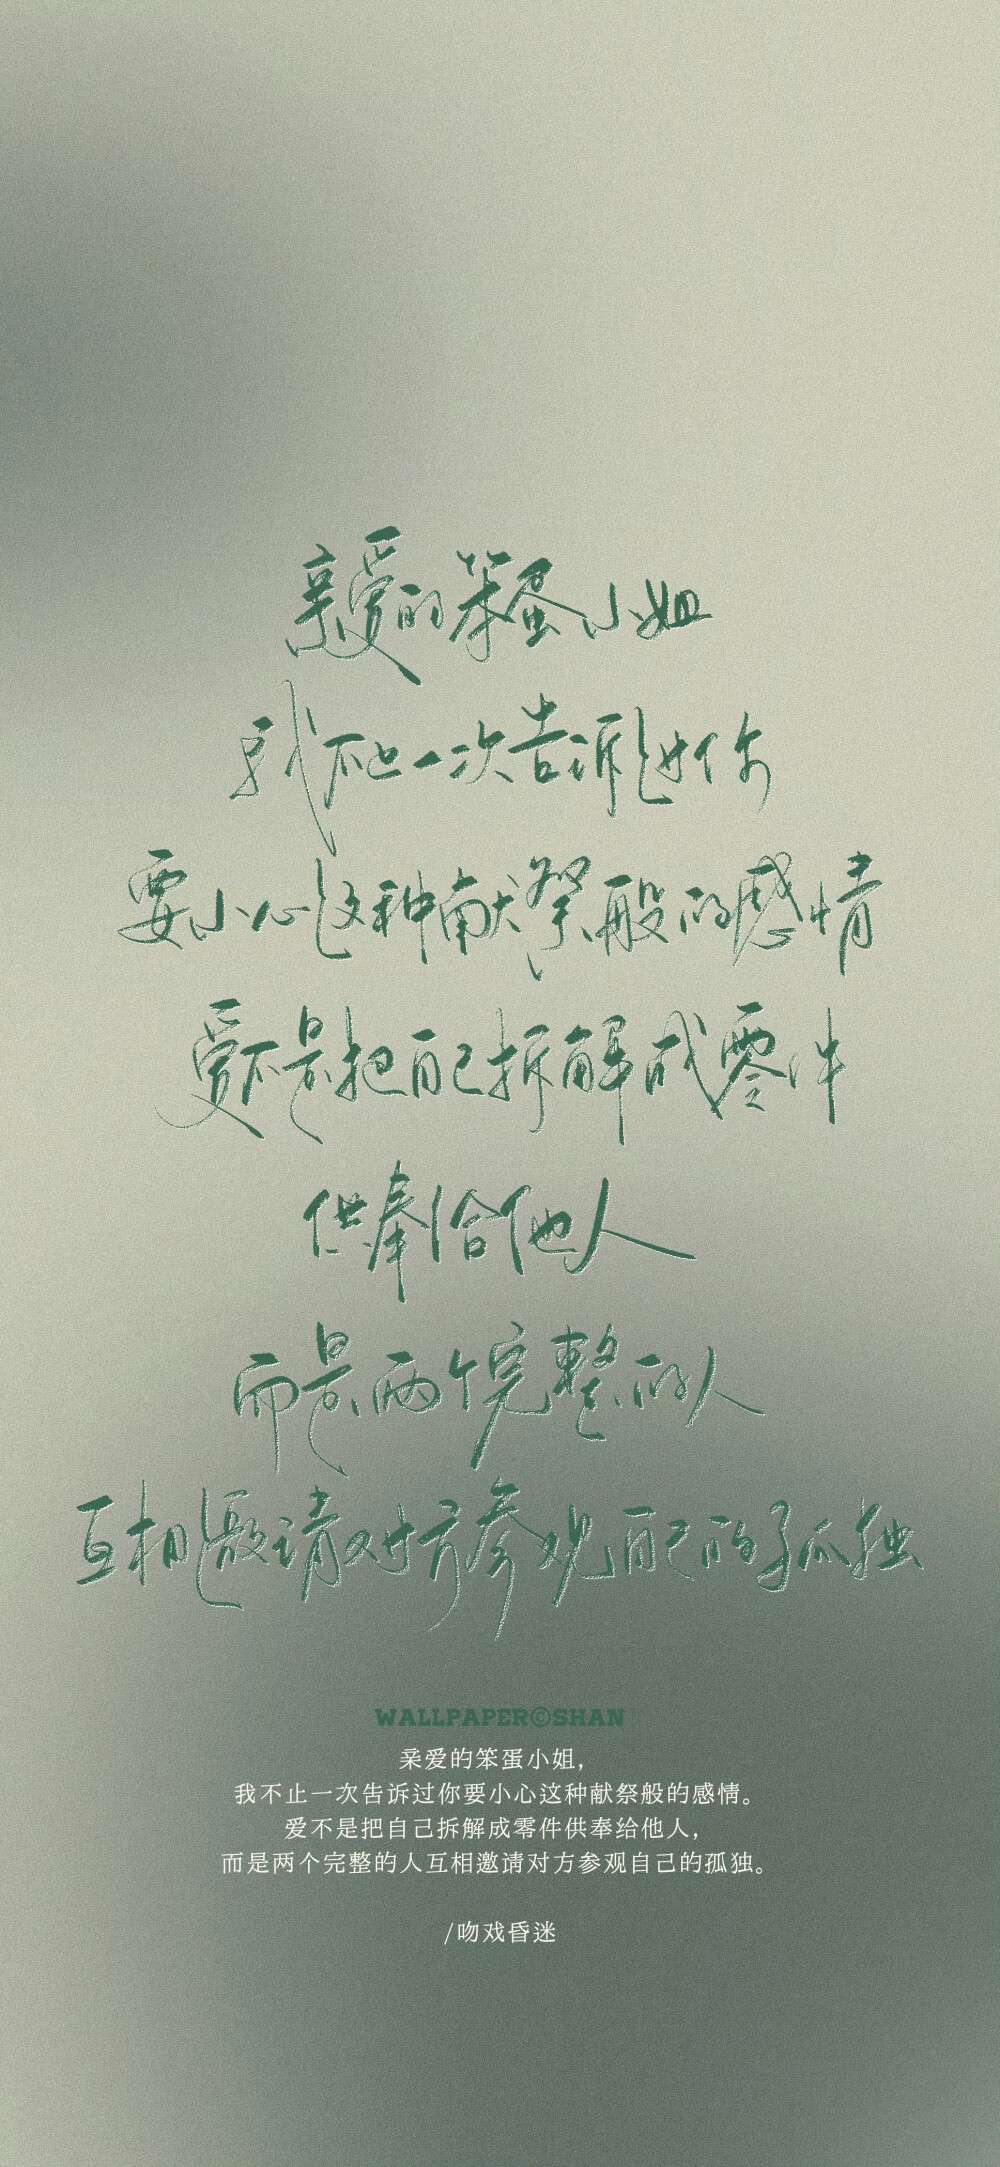 亲爱的笨蛋小姐
我不止一次告诉过你
要小心这种献祭般的感情
爱不是把自己拆解成零件
供奉给他人
而是两个完整的人
互相邀请对方参观自己的孤独
WALLPAPER©SHAN
亲爱的笨蛋小姐，
我不止一次告诉过你要小心这种献祭般的感情。
爱不是把自己拆解成零件供奉给他人，
而是两个完整的人互相邀请对方参观自己的孤独。
/吻戏昏迷